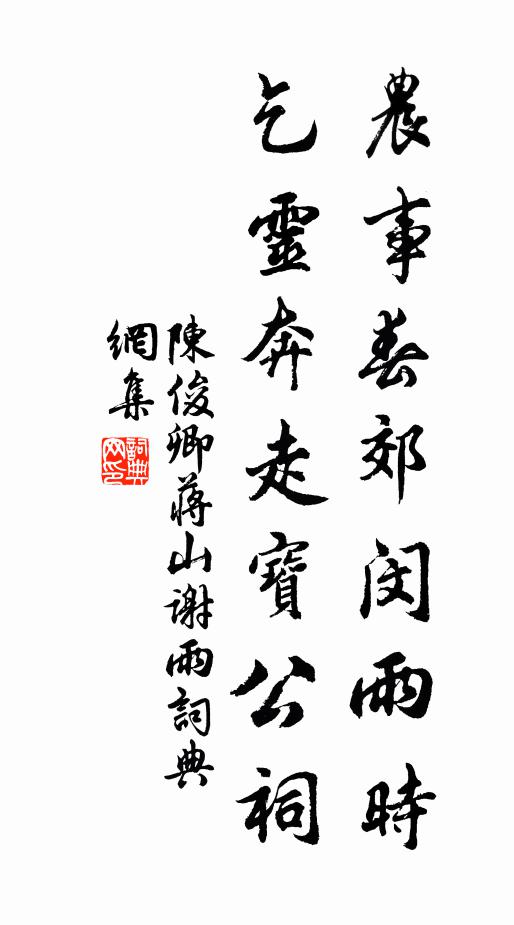 農事春郊閔雨時
乞靈奔走寶公祠
陳俊卿蔣山謝雨詞典
網集
詞典
网印